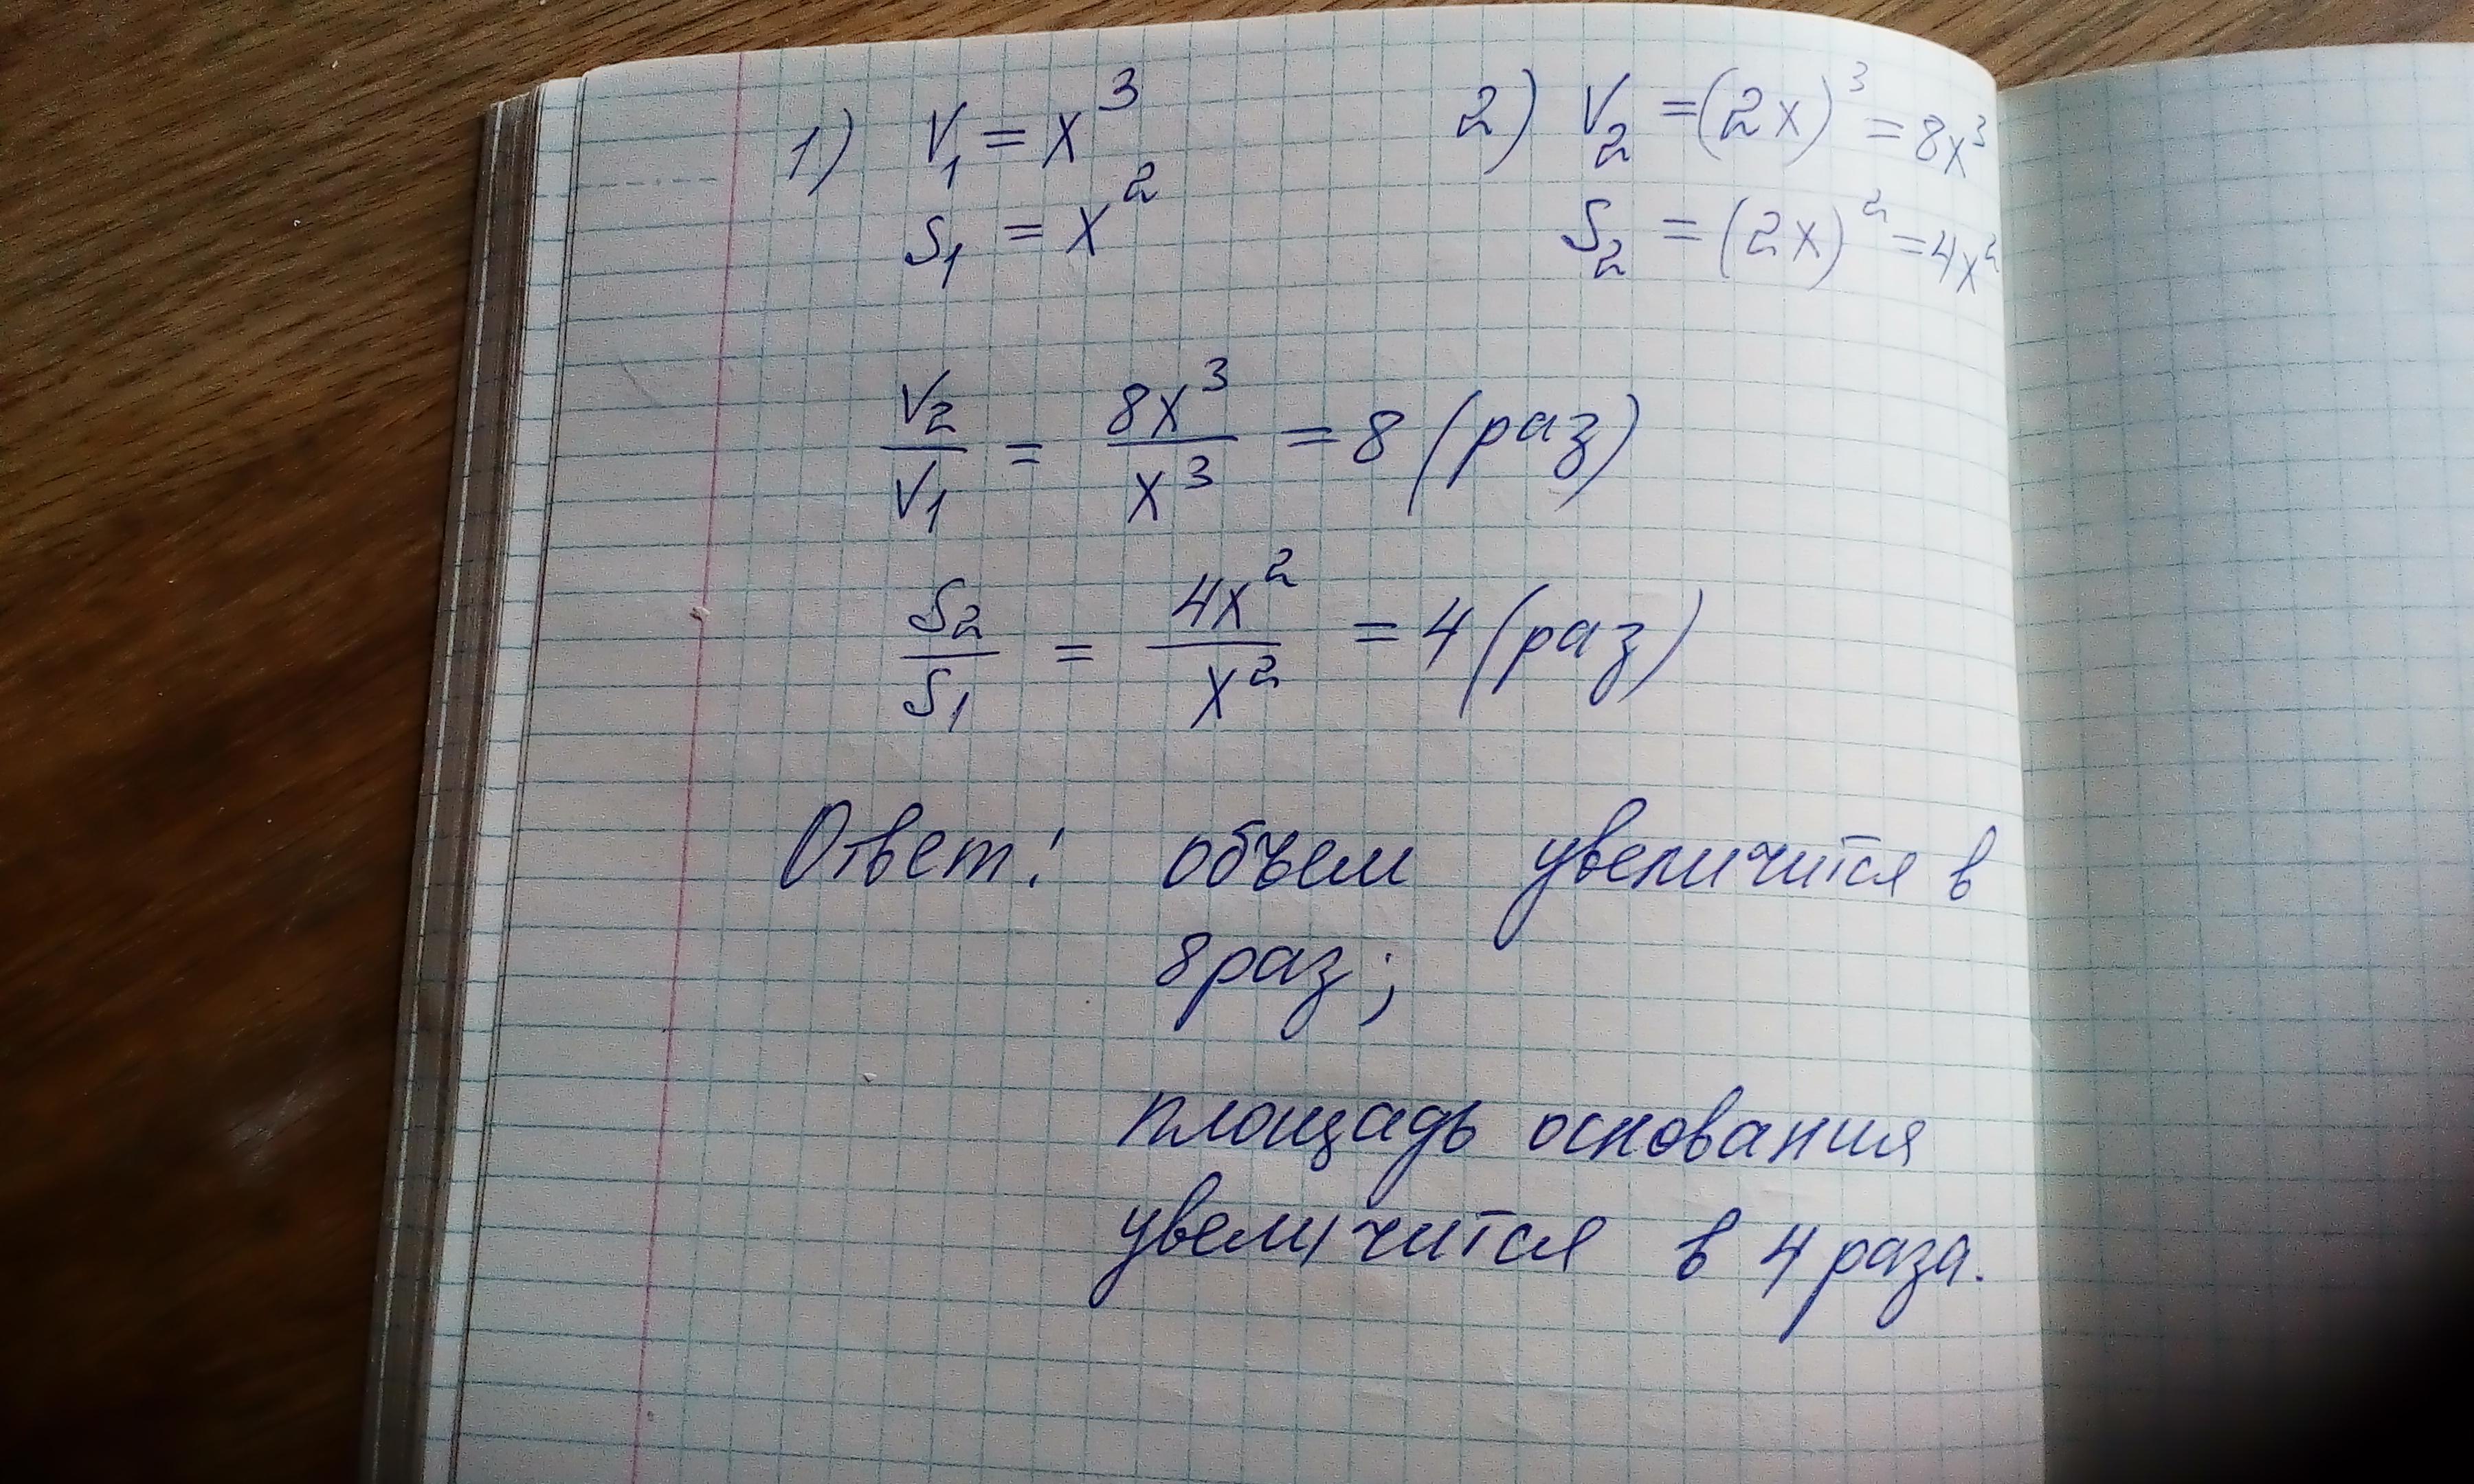 1) V₁ = x³ 2) V₂ = (2x)³ = 8x³
S₁ = x² S₂ = (2x)² = 4x²
V₂/V₁ = 8x³/x³ = 8 (раз)
S₂/S₁ = 4x²/x² = 4 (раз)
Ответ: объем увеличится в
8 раз;
площадь основания
увеличится в 4 раза.